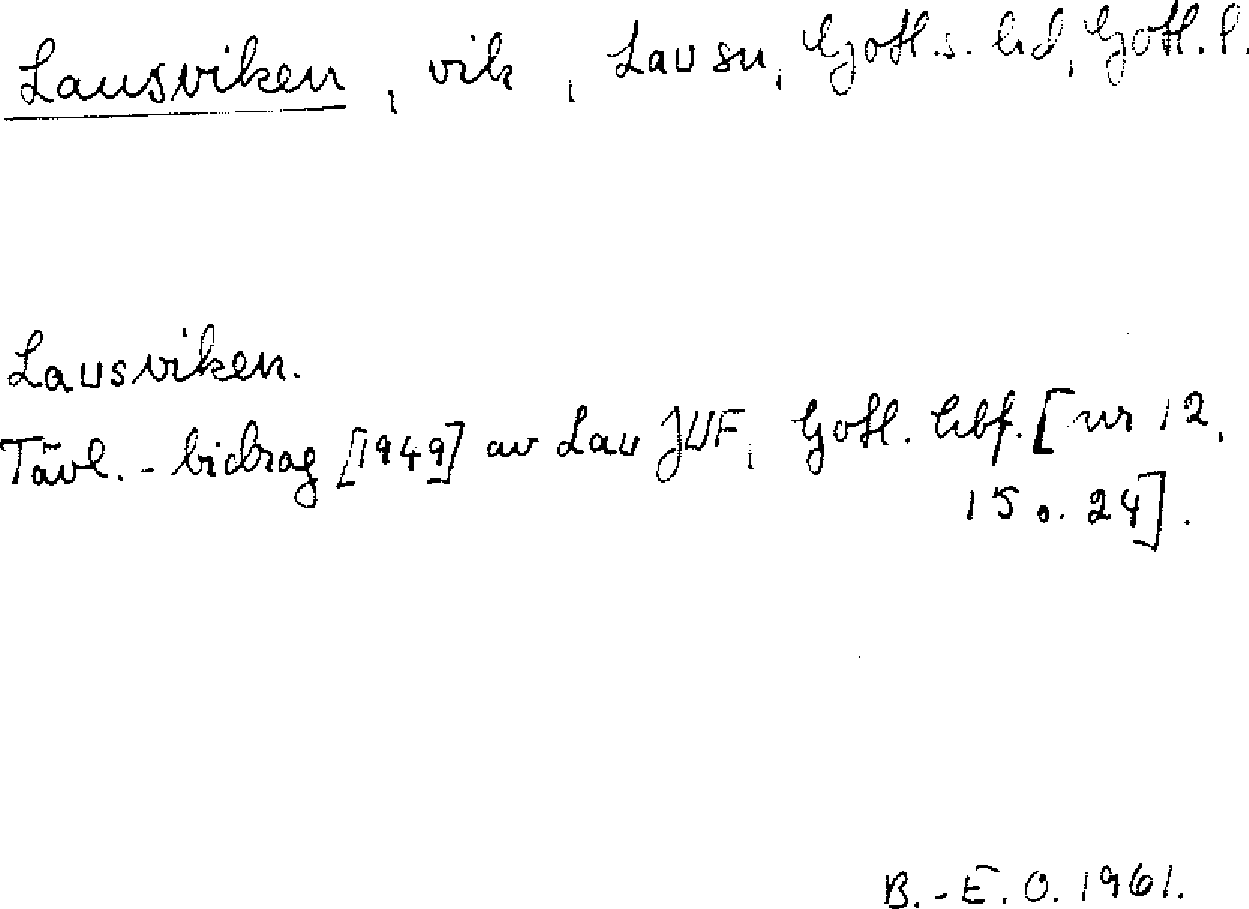 Lausviken, vik, Lau sn, Gotl. s. hd, Gotl. l.
Lausviken.
Tävl.-bidrag [1949] av Lau JUF, Gotl. hbf. [nr 12,
15 o. 24].
B.-E. O. 1961.